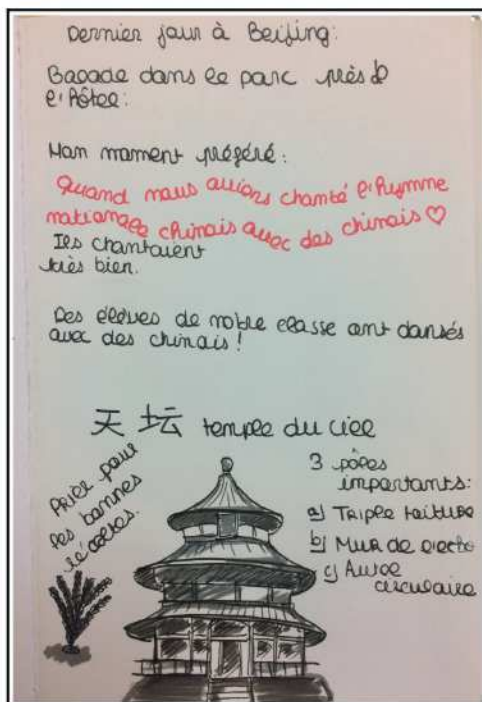 Dernier jour à Beijing:
Balade dans le parc près de
l'hôtel:
Mon moment préféré:
Quand nous avions chanté l'hymne
nationale chinais avec des chinais ♡
Ils chantaient
très bien.
Des élèves de notre classe ont dansés
avec des chinais!
天坛 temple du ciel
Prier pour
les bonnes
récoltes.
3 pôles
importants:
a) Triple toiture
b) Mur de l'echo
c) Autel
circulaire